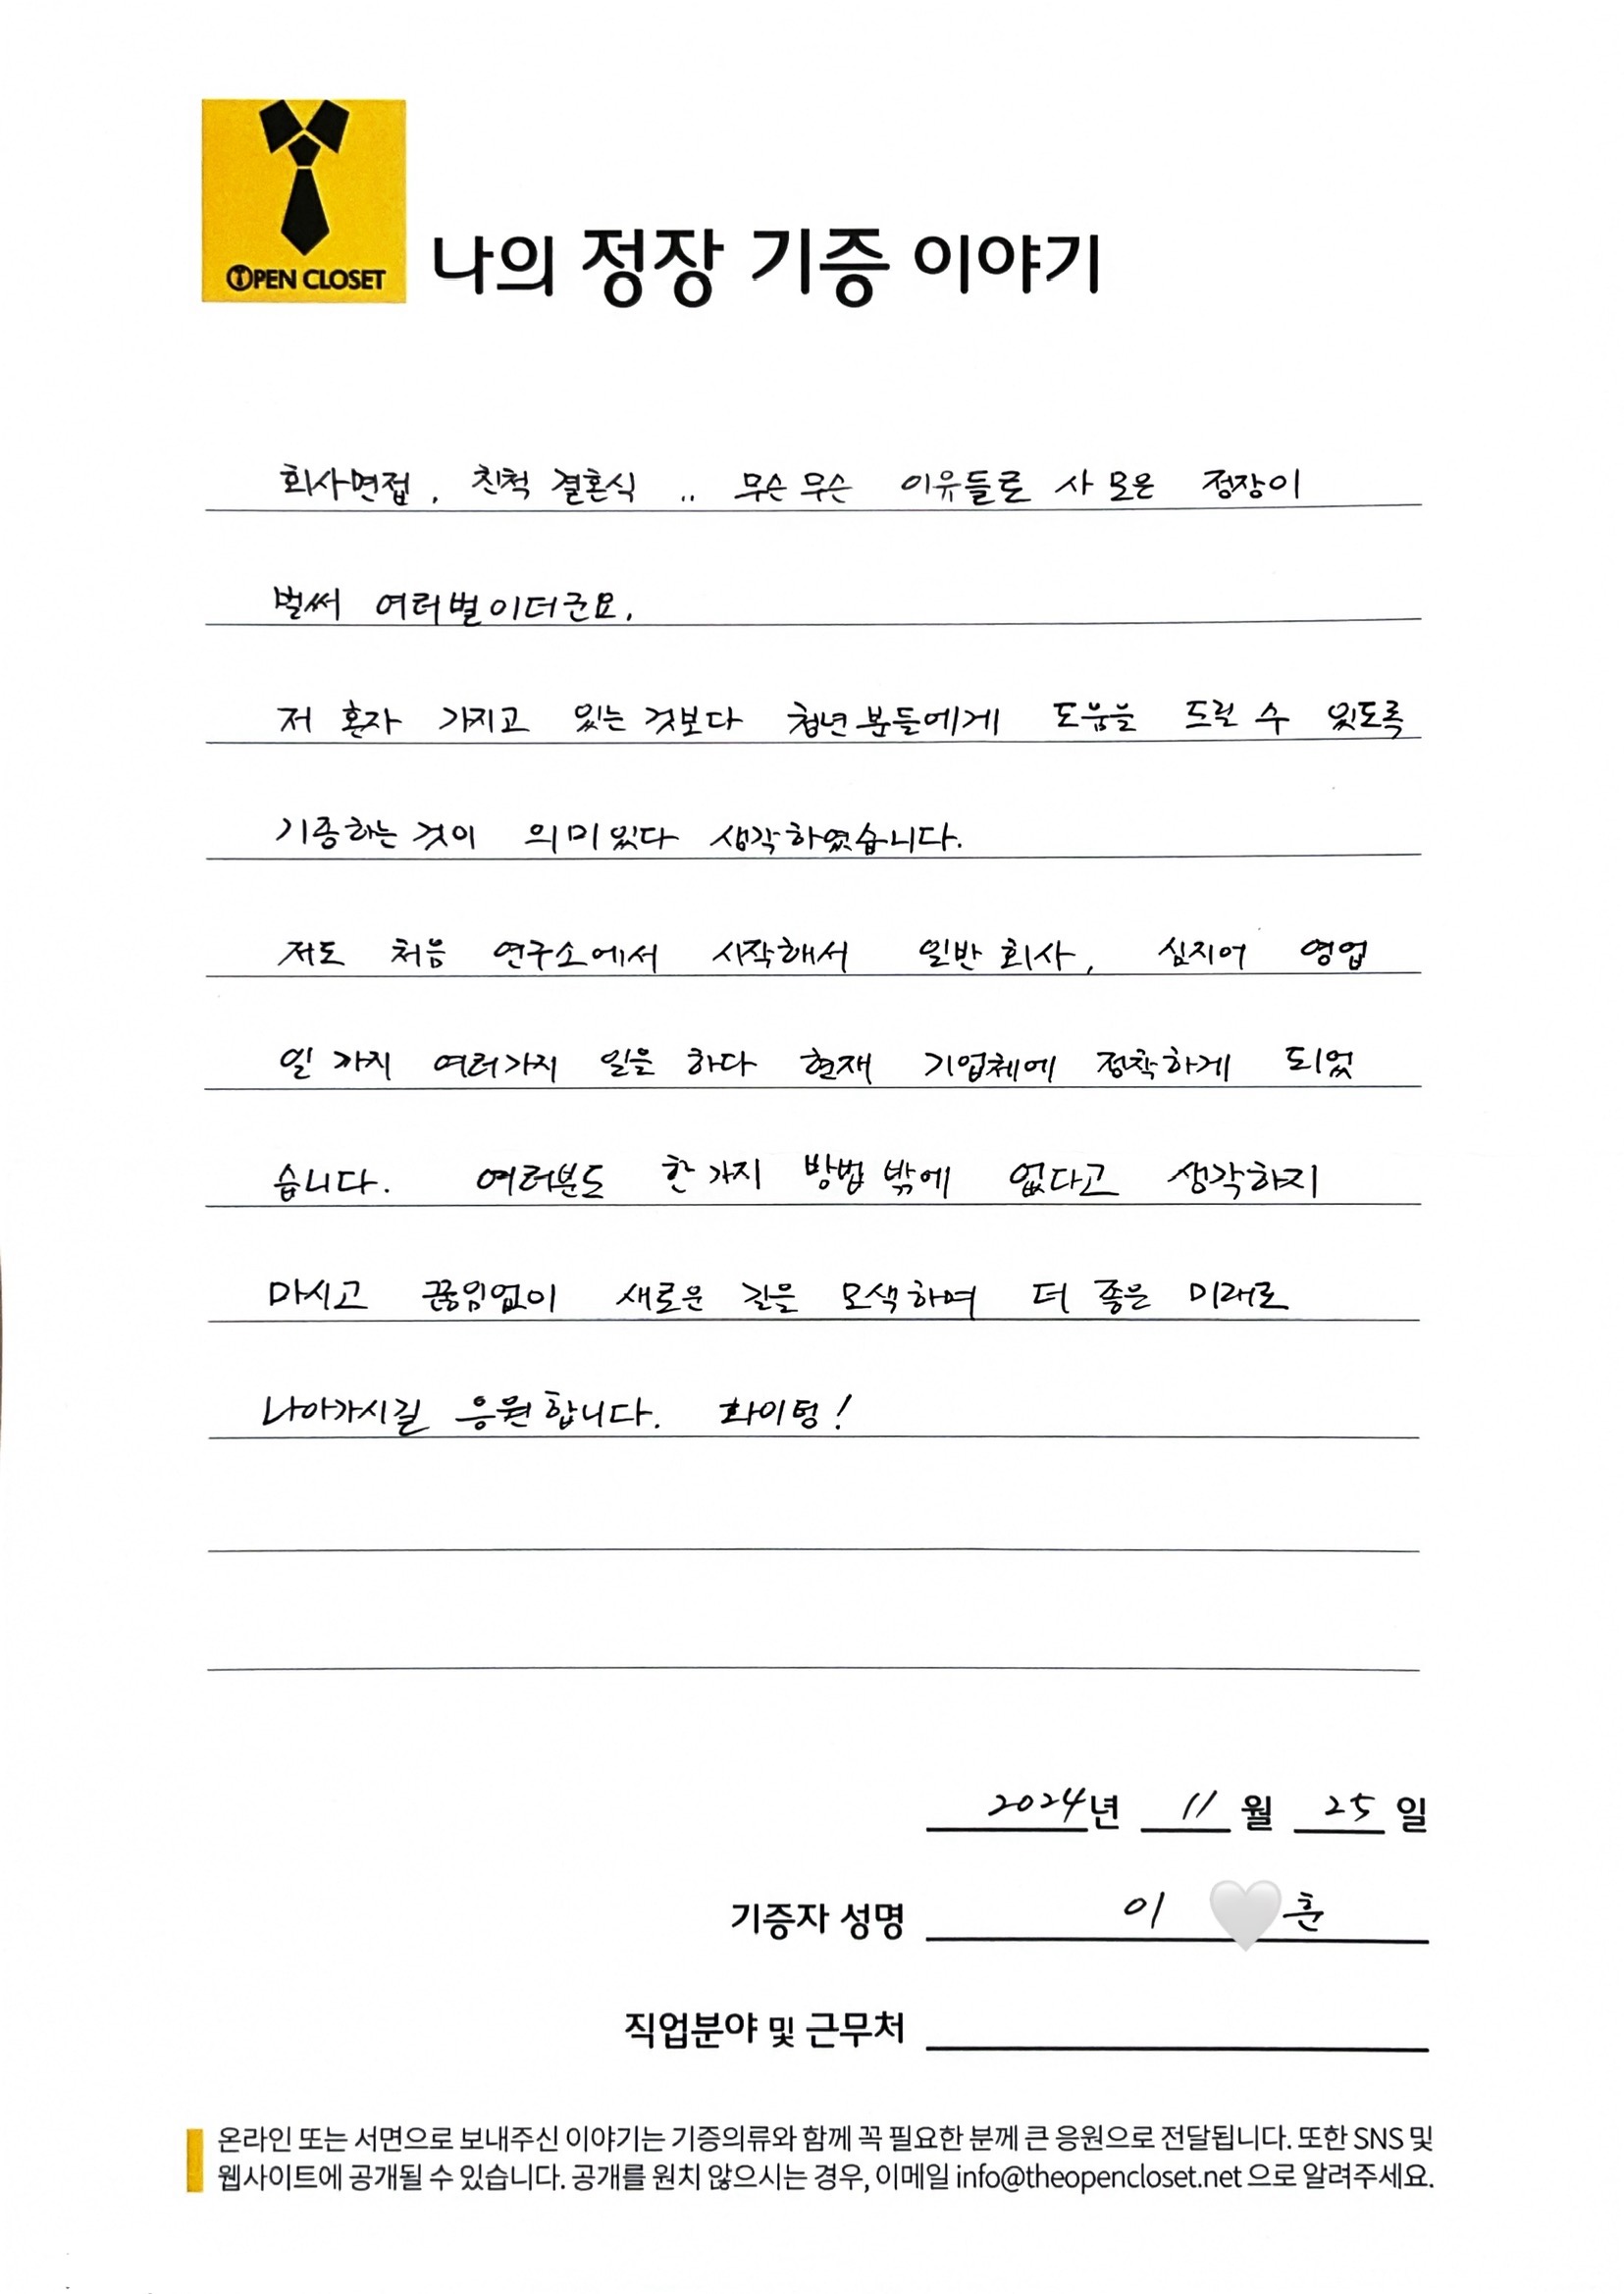 OPEN CLOSET
나의 정장 기증 이야기
회사면접, 친척 결혼식 .. 무슨 무슨 이유들로 사 모은 정장이
벌써 여러벌이더군요.
저 혼자 가지고 있는 것보다 청년분들에게 도움을 드릴 수 있도록
기증하는 것이 의미있다 생각하였습니다.
저도 처음 연구소에서 시작해서 일반 회사, 심지어 영업
일 까지 여러가지 일을 하다 현재 기업체에 정착하게 되었
습니다. 여러분도 한 가지 방법 밖에 없다고 생각하지
마시고 끊임없이 새로운 길을 모색하여 더 좋은 미래로
나아가시길 응원합니다. 화이팅!
2024년 11월 25일
기증자 성명 이 훈
직업분야 및 근무처
온라인 또는 서면으로 보내주신 이야기는 기증의류와 함께 꼭 필요한 분께 큰 응원으로 전달됩니다. 또한 SNS 및
웹사이트에 공개될 수 있습니다. 공개를 원치 않으시는 경우, 이메일 info@theopencloset.net 으로 알려주세요.